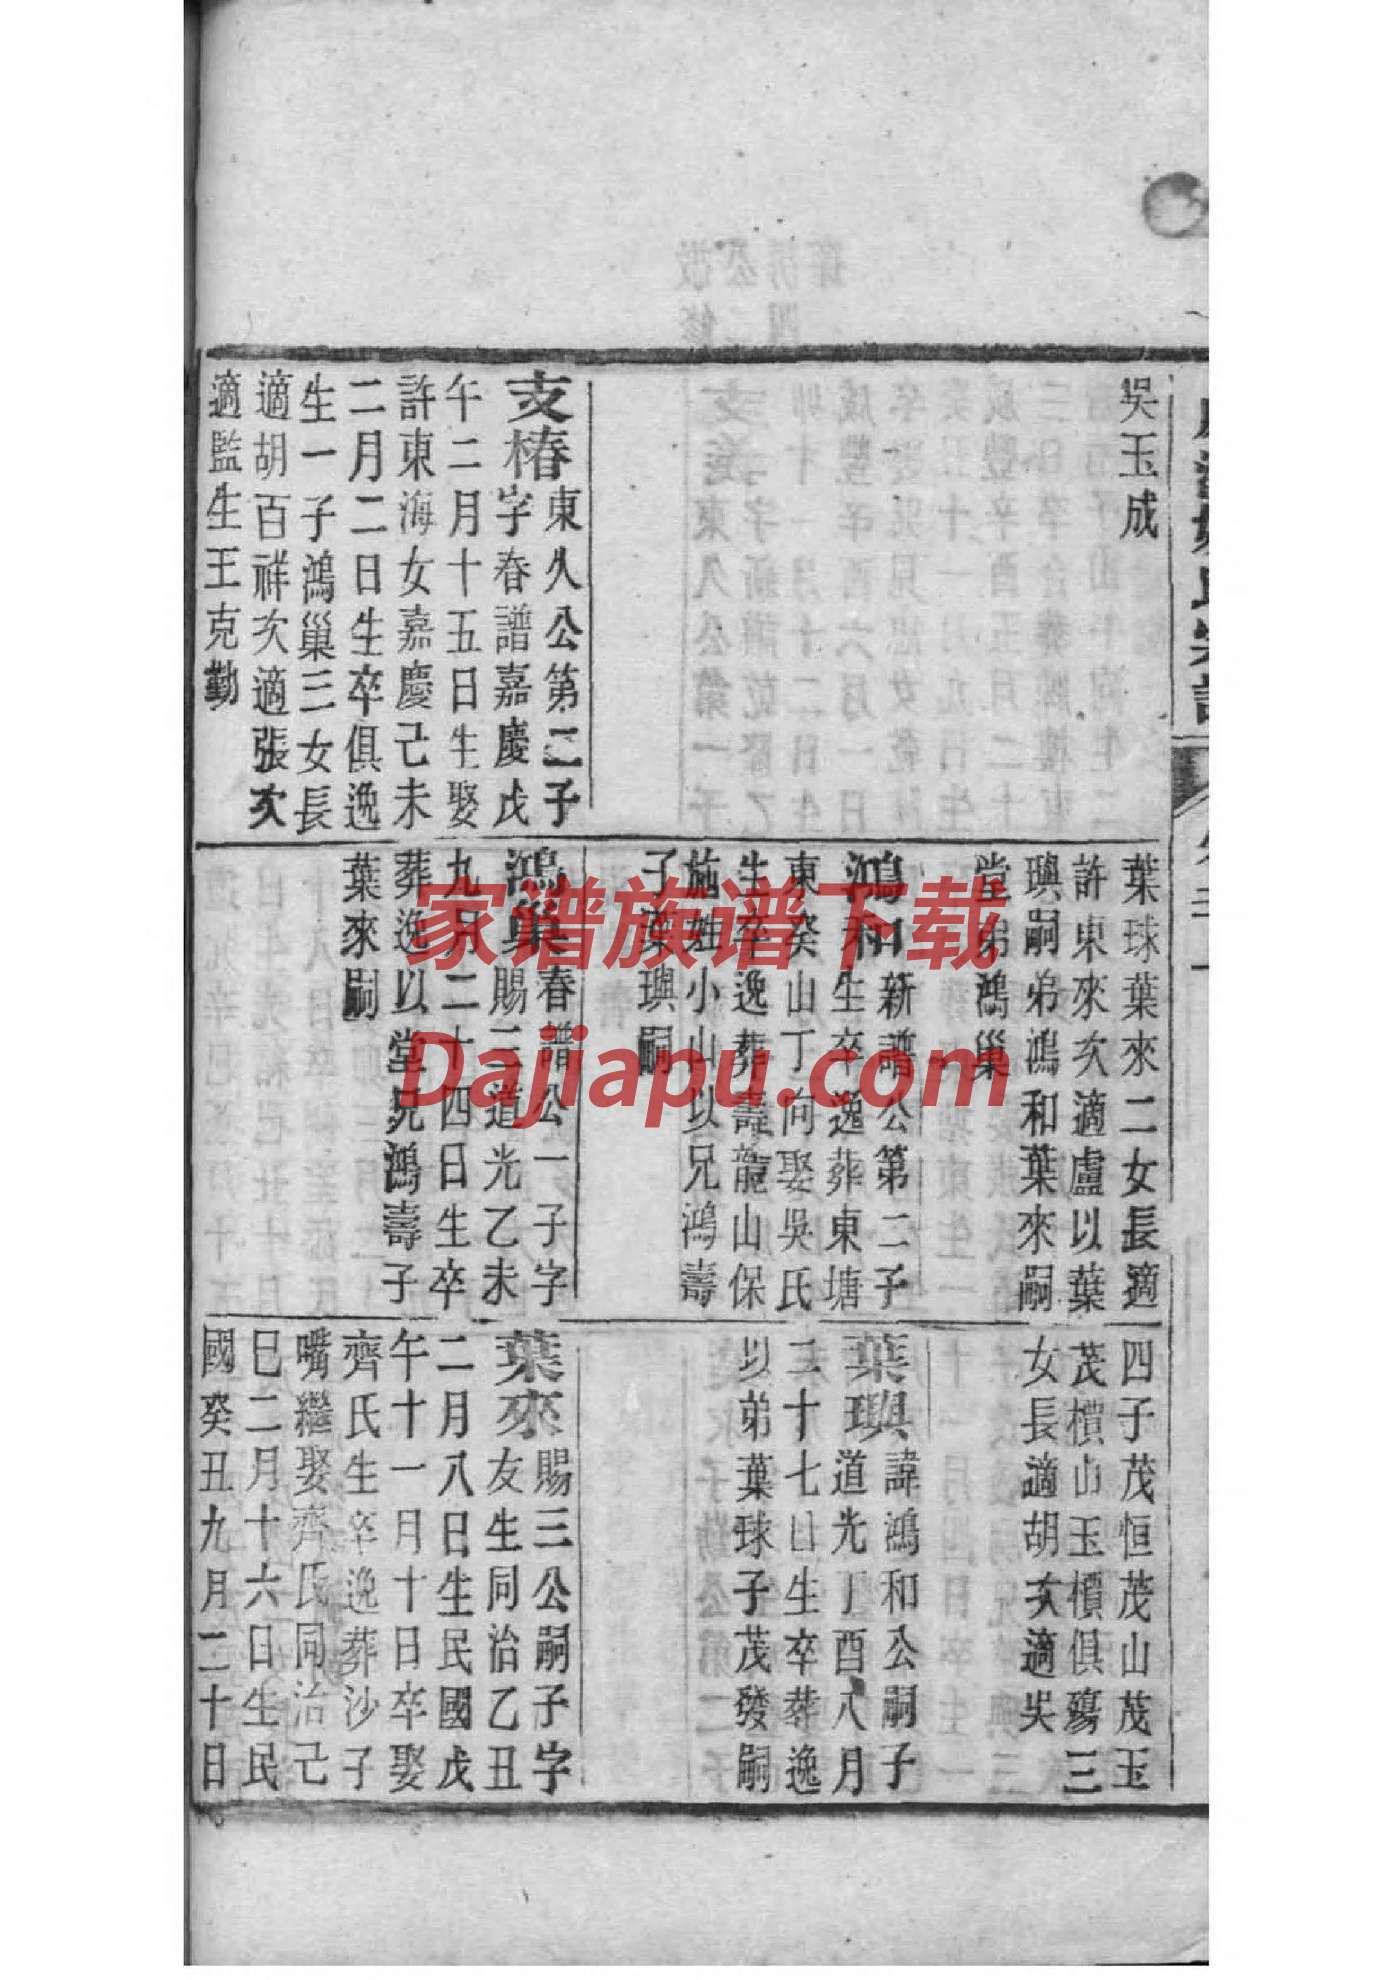 吳玉成
支椿東久公第二子
字春譜嘉慶戊
午二月十五日生娶
許東海女嘉慶己未
二月二日生卒俱逸
生一子鴻巢三女長
適胡百祥次適張次
適監生王克勤
葉球葉來二女長適
許東來次適盧以葉
璵嗣弟鴻和葉來嗣
堂弟鴻巢
鴻和新譜公第二子
生卒逸葬東塘
東癸山丁向娶吳氏
生卒逸葬壽龍山保
施姓小山以兄鴻壽
子葉璵嗣
鴻巢春譜公一子字
賜三道光乙未
九月二十四日生卒
葬逸以堂兄鴻壽子
葉來嗣
四子茂恒茂山茂玉
茂樻山玉樻俱殤三
女長適胡次適吳
葉璵諱鴻和公嗣子
道光丁酉八月
二十七日生卒葬逸
以弟葉球子茂發嗣
葉來賜三公嗣子字
友生同治乙丑
二月八日生民國戊
午十一月十日卒娶
齊氏生卒逸葬沙子
嘴繼娶齊氏同治己
巳二月十六日生民
國癸丑九月二十日
家谱族谱下载
Dajiapu.com